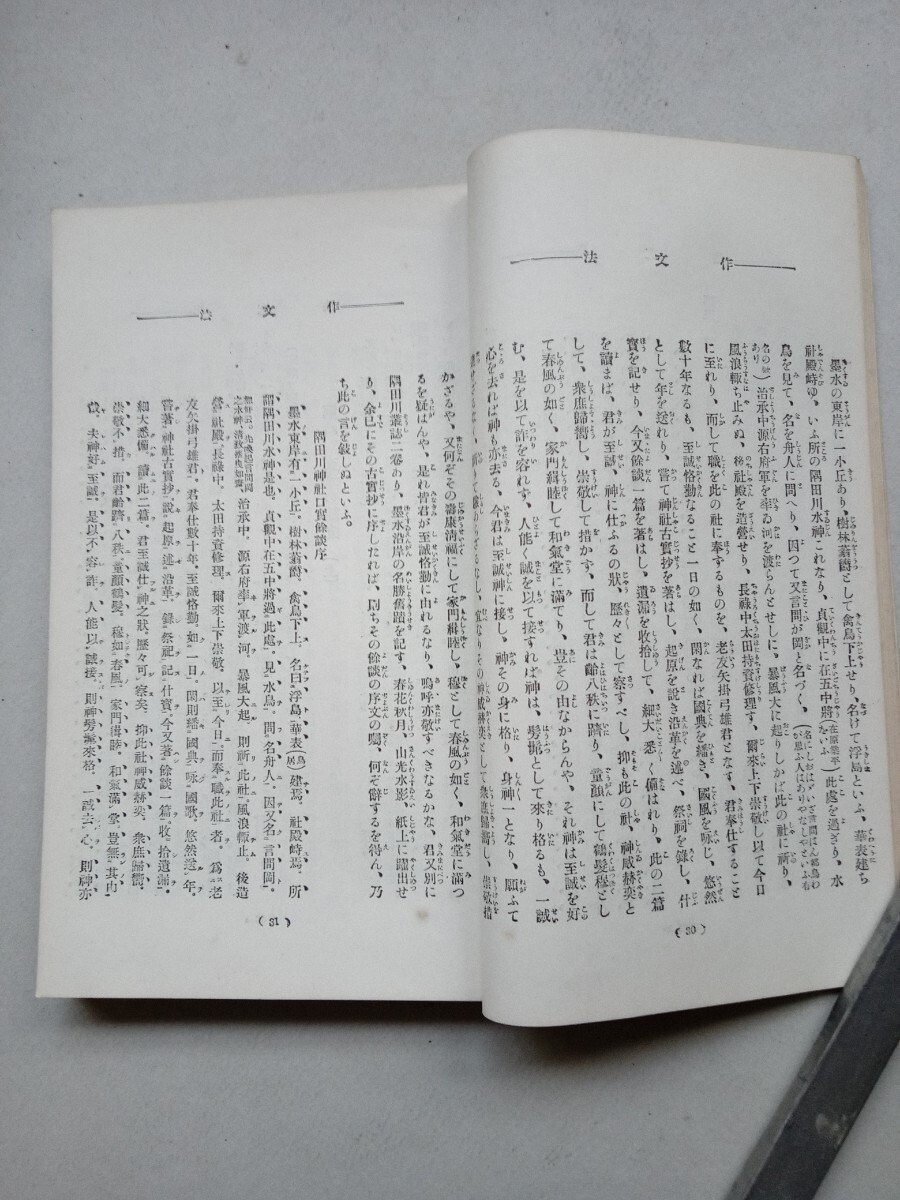 作文法
墨水の東岸に一小丘あり、樹林蓊鬱として禽鳥下上せり、名けて浮島といふ、華表建ち
社殿峙ゆ、いふ所の隅田川水神これなり、貞觀中に在五中將(在原業平をいふ)此處を過ぎり、水
鳥を見て、名を舟人に問へり、因つて又言問が岡と名づく、(名にしおはゞいざ言問はん都鳥わが思ふ人はありやなしやといふ有
名の歌あり)治承中源右府軍を率ゐ河を渡らんとせしに、暴風大に起りしかば此の社に祈り、
風浪輙ち止みぬ、後社殿を造營せり、長祿中太田持資修理す、爾來上下崇敬し以て今日
に至れり、而して職を此の社に奉ずるものを、老友矢掛弓雄君となす、君奉仕すること
數十年なるも、至誠恪勤なること一日の如く、閑なれば國典を繙き、國風を咏し、悠然
として年を送れり、嘗て神社古實抄を著はし、起原を說き沿革を述べ、祭祠を錄し、什
寶を記せり、今又餘談一篇を著はし、遺漏を收拾して、細大悉く備はれり、此の二篇
を讀まば、君が至誠、神に仕ふるの狀、歷々として察すべし、抑も此の社、神威赫奕と
して、衆庶歸嚮し、崇敬して措かず、而して君は齡八秩に躋り、童顏にして鶴髮穆とし
て春風の如く、家門輯睦して和氣堂に滿てり、豈その由なからんや、それ神は至誠を好
む、是を以て詐を容れず、人能く誠を以て接すれば神は、髣髴として來り格るも、一誠
心を去れば神も亦去る、今君は至誠神に接し、神その身に格り、身神一となり、願ふて
(30)
作文法
かざるや、又何ぞその壽康清福にして家門輯睦し、穆として春風の如く、和氣堂に滿つ
るを疑はんや、是れ皆君が至誠恪勤に由れるなり、嗚呼亦敬すべきなるかな、君又別に
隅田川叢誌二卷あり、墨水沿岸の名勝舊蹟を記す、春花秋月、山光水影、紙上に躍出せ
り、余已にその古實抄に序したれば、則ちその餘談の序文の囑、何ぞ辭するを得ん、乃
ち此の言を叙しぬといふ。
隅田川神社口實餘談序
墨水東岸有一小丘。樹林蓊鬱、禽鳥下上、名曰浮島。華表(鳥居)建焉、社殿峙焉、所
謂隅田川水神是也。貞觀中在五中將過此處。見水鳥、問名舟人、因又名言問岡。
治承中、源右府率軍渡河。暴風大起、則祈此社、風浪輙止。後造
營社殿、長祿中、太田持資修理。爾來上下崇敬、以至今日、而奉職此社者。爲老
友矢掛弓雄君。君奉仕數十年、至誠恪勤、如一日、閑則繙國典、咏國歌、悠然送年。
嘗著神社古實抄。說起原、述沿革、錄祭祀、記什寶。今又著餘談一篇。收拾遺漏、
細大悉備。讀此二篇。君至誠仕神之狀、歷々可察矣。抑此社神威赫奕、衆庶歸嚮、
崇敬不措、而君齡躋八秩、童顏鶴髮、穆如春風、家門輯睦、和氣滿堂、豈無其由
哉、夫神好至誠、是以不容詐、人能以誠接、則神髣髴來格、一誠去心、則神亦
(31)